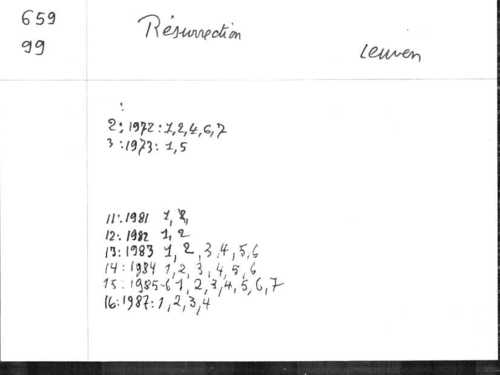 659
99
Résurrection
Leuven
:
2: 1972: 1,2,4,6,7
3: 1973: 1,5
11: 1981 1,2,
12: 1982 1,2
13: 1983 1, 2, 3, 4, 5, 6
14: 1984 1, 2, 3, 4, 5, 6
15: 1985-6 1, 2, 3, 4, 5, 6, 7
16: 1987: 1, 2, 3, 4